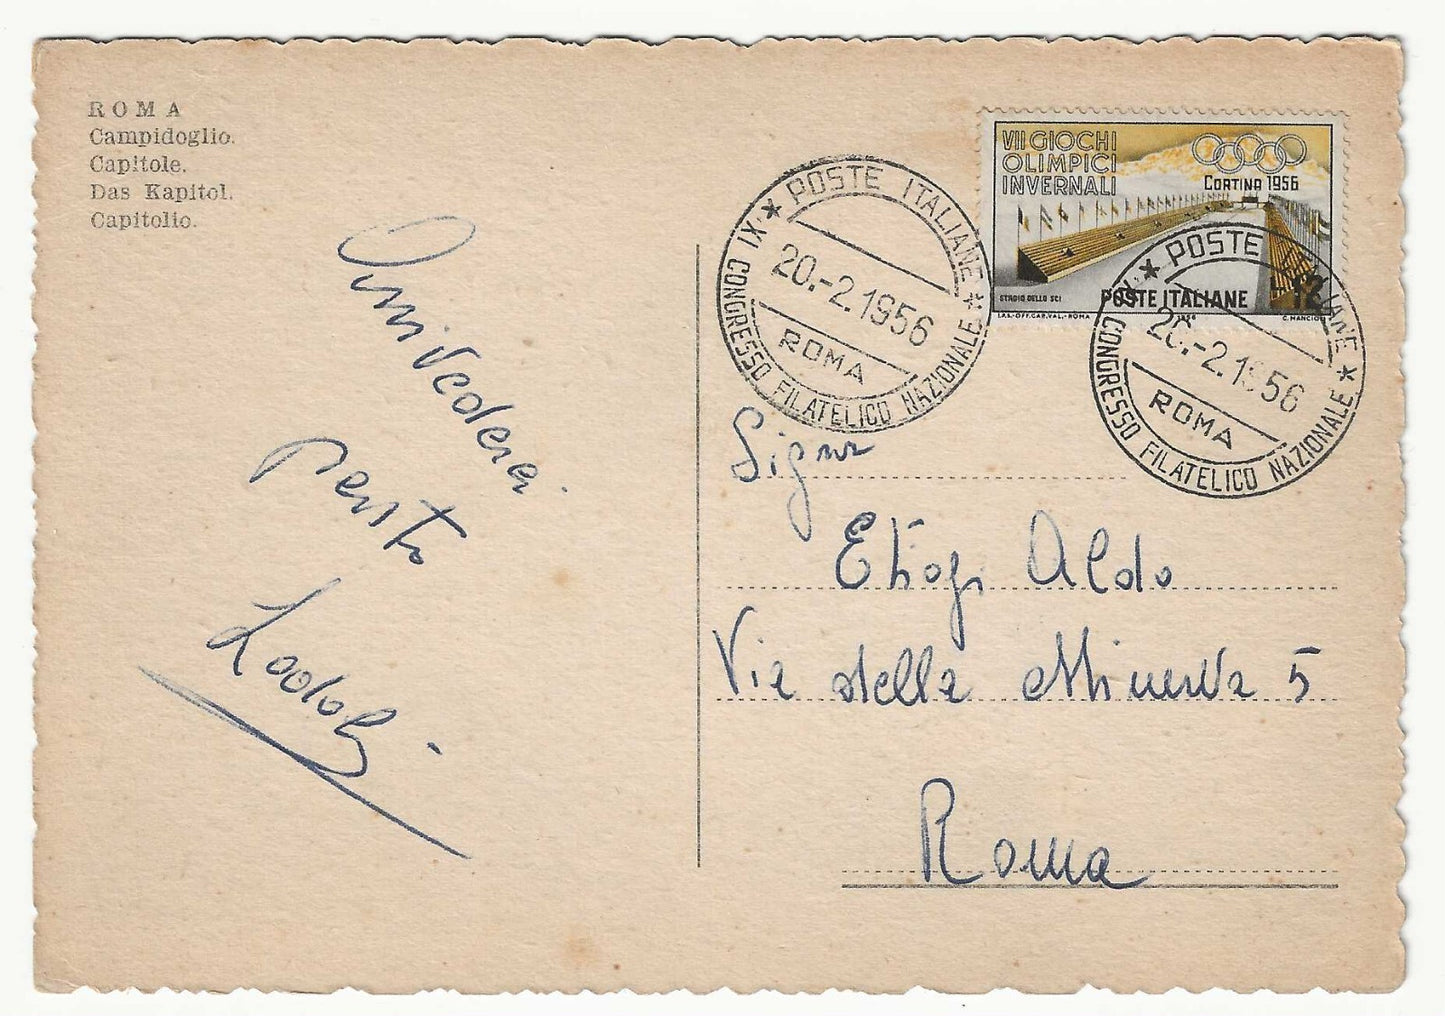 ROMA
Campidoglio.
Capitole.
Das Kapitol.
Capitolio.
VII GIOCHI
OLIMPICI
INVERNALI
CORTINA 1956
STADIO DELLO SCI
POSTE ITALIANE 12
I.P.S.-OFF.CAR.VAL.-ROMA 1956 C. MANCIOLI
XI CONGRESSO FILATELICO NAZIONALE * POSTE ITALIANE *
20.-2.1956
ROMA
XI CONGRESSO FILATELICO NAZIONALE * POSTE ITALIANE *
20.-2.1956
ROMA
Arrivederci
presto
Signor
Aldo
Via della Minerva 5
Roma